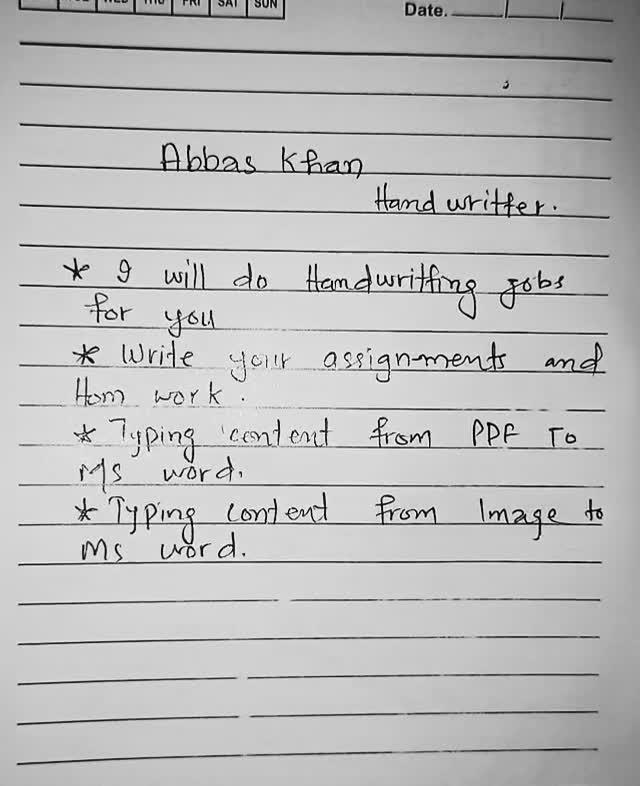 WED THU FRI SAT SUN
Date.
Abbas Khan
Hand writter.
* I will do Handwritting jobs
for you
* Write your assign-ments and
Hom work.
* Typing content from PDF To
Ms word.
* Typing content from Image to
Ms word.